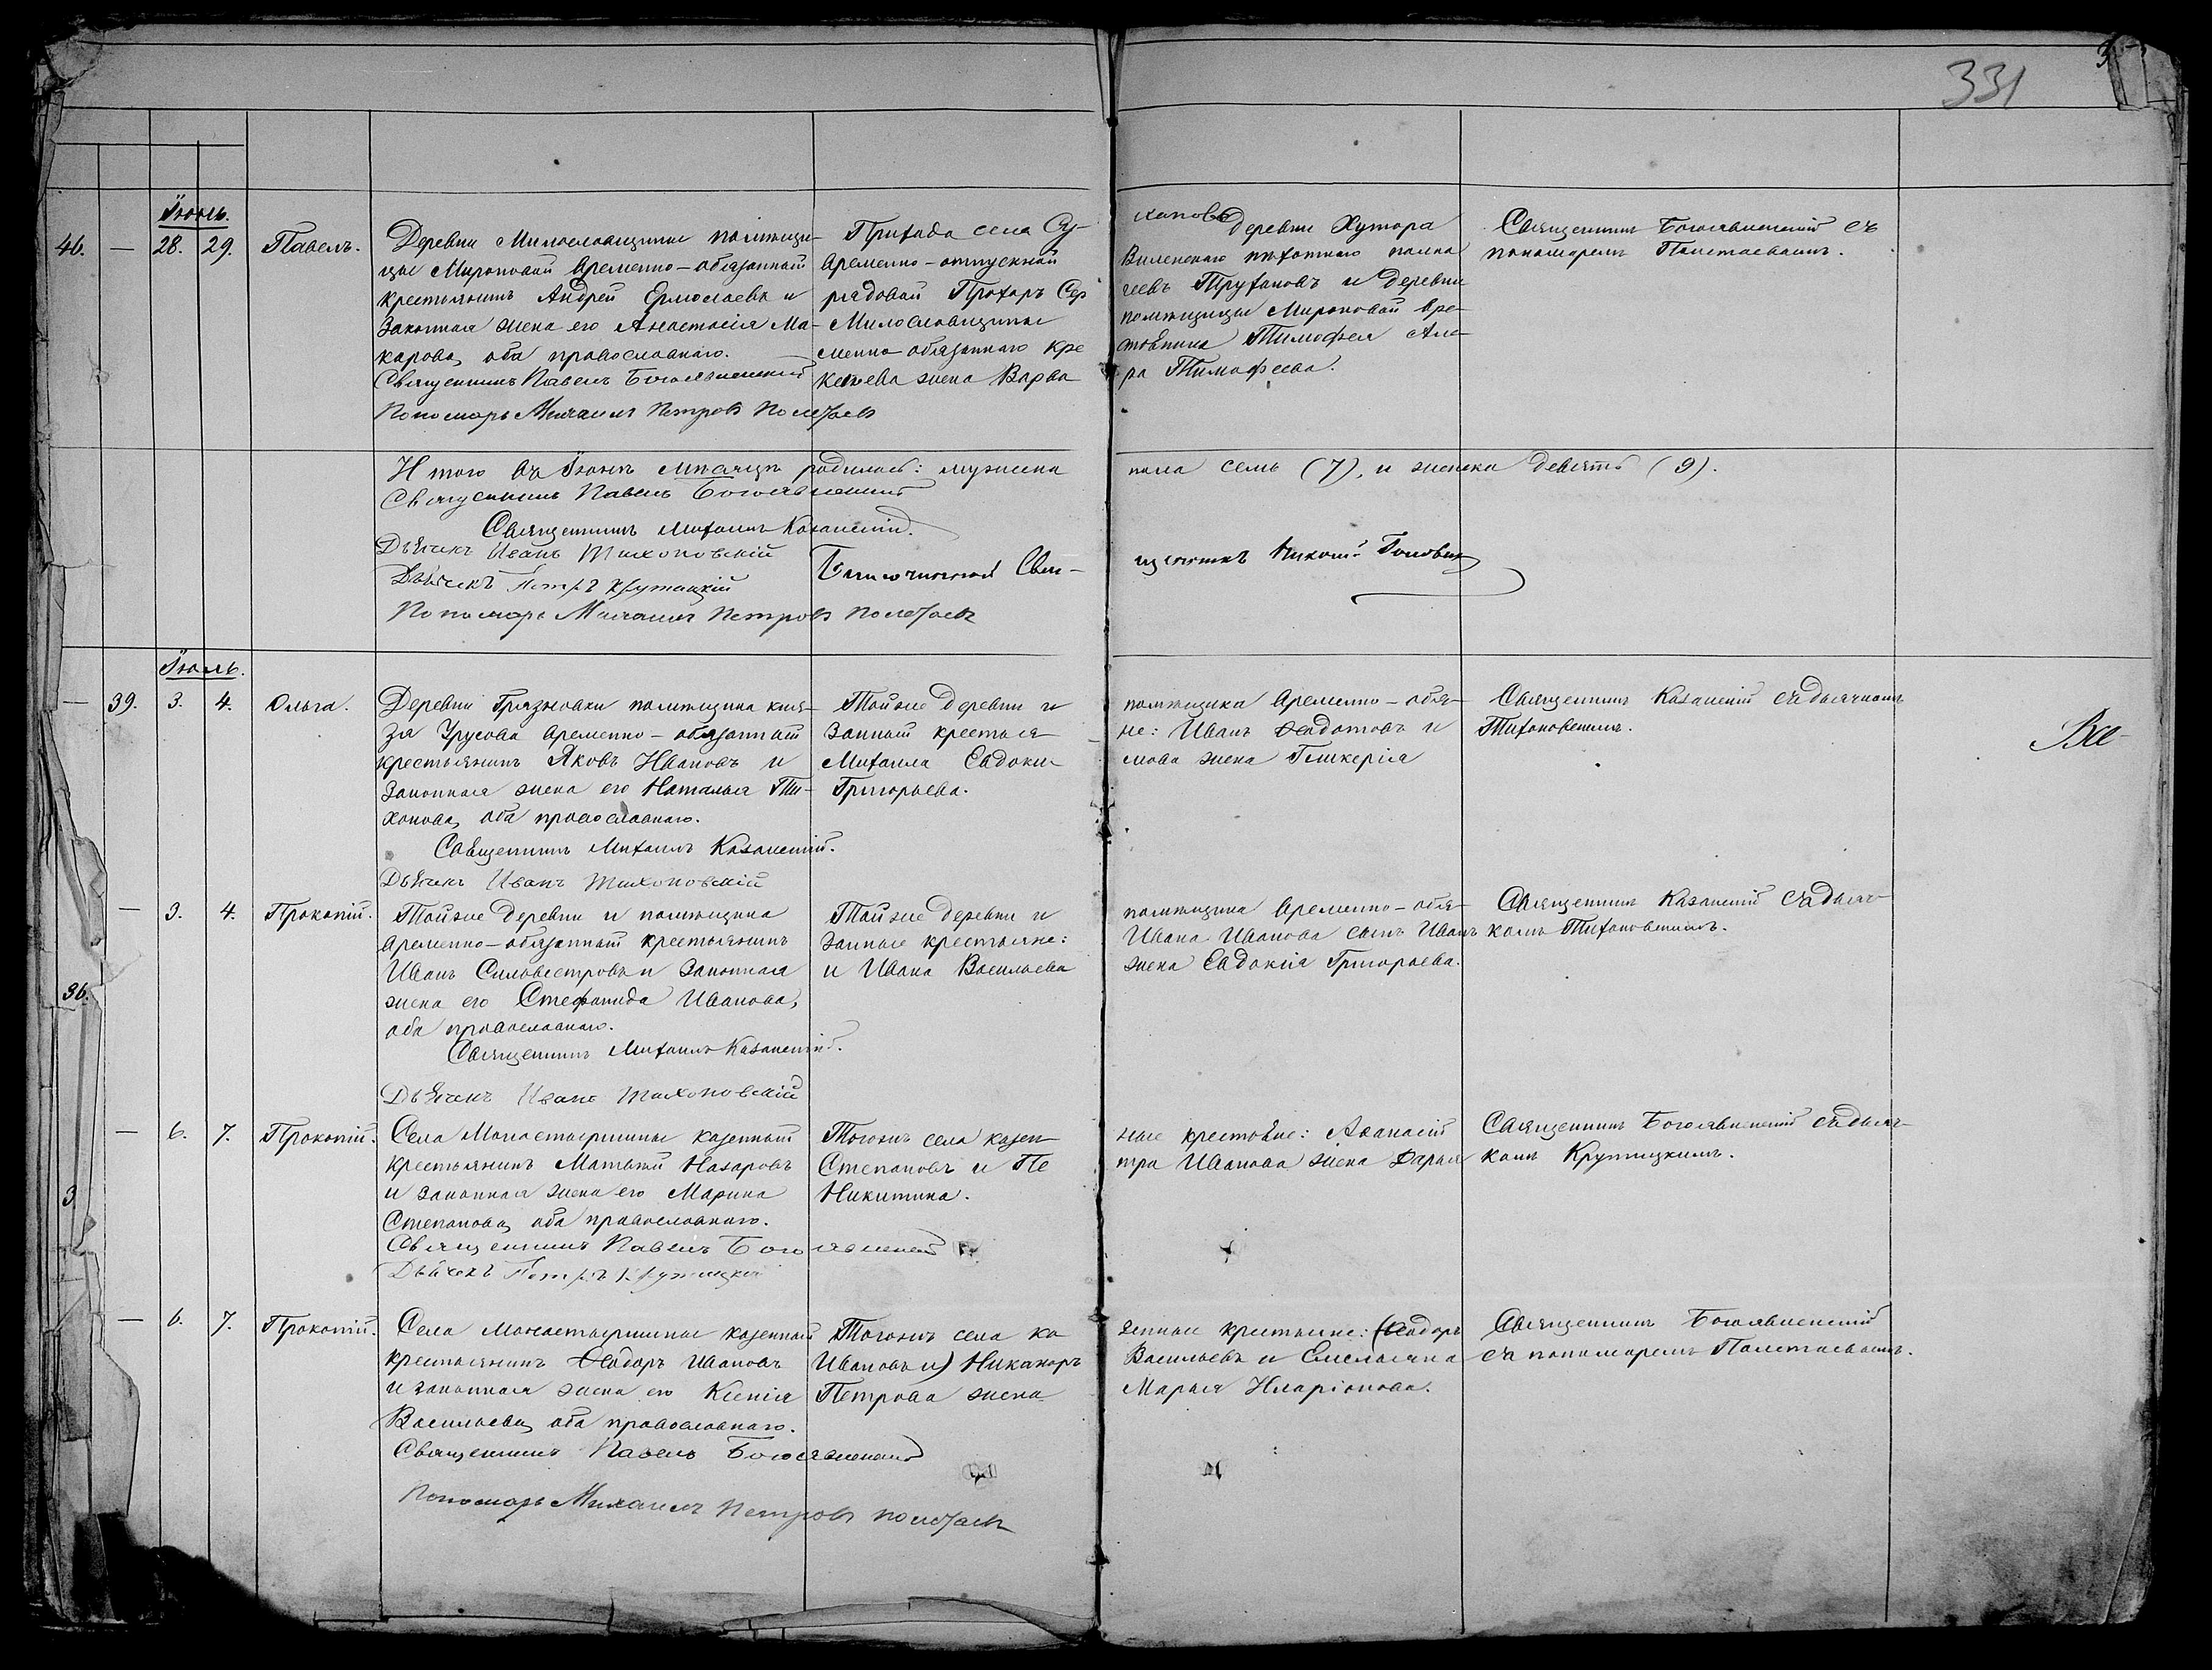 331
Іюнь.
46. — 28. 29. Павелъ.
Деревни Милославщины помѣщи-
цы Мироновой временно-обязанный
крестьянинъ Андрей Ермолаевъ и
законная жена его Анастасія Ма-
карова, оба православнаго.
Священникъ Павелъ Богоявленский
Пономарь Михаилъ Петровъ Полетаевъ
Прихода села Су-
временно-отпускной
рядовой Прохоръ Сер
Милославщины
менно обязаннаго кре
ксѣева женаВарва
хановъ деревни Хутора
Виленскаго пѣхотнаго полка
геевъ Труфановъ и деревни
помѣщицы Мироновой вре-
стьянина Тимофея Але-
ра Тимофеева.
Священникъ Богоявленскій съ
пономаремъ Полетаевымъ.
Итого въ Іюнѣ мѣсяцѣ родилось: мужеска пола семь (7), и женска девять (9).
Священникъ Павелъ Богоявленский
Священникъ Михаилъ Казанскій.
Дьячекъ Иванъ Тихоновскій
Дьячекъ Петръ Крутицкій
Благочинный Свя-
щенникъ
Пономарь Михаилъ Петровъ Полетаевъ
Іюль.
— 39. 3. 4. Ольга.
Деревни Грязновки помѣщика кня-
зя Урусова временно-обязанный
крестьянинъ Яковъ Ивановъ и
законная жена его Наталья Ти-
хонова, оба православнаго.
Священникъ Михаилъ Казанскій.
Дьячекъ Иванъ Тихоновскій
Тойже деревни и
занный крестья-
Михаила Евдоки-
Григорьева.
помѣщика временно-обя-
не: Иванъ Ѳедотовъ и
мова жена Гликерія
Священникъ Казанскій съ дьячкомъ
Тихоновскимъ.
Все-
36. — 3. 4. Прокопій.
Тойже деревни и помѣщика
временно-обязанный крестьянинъ
Иванъ Сильвестровъ и законная
жена его Стефанида Иванова,
оба православнаго.
Священникъ Михаилъ Казанскій.
Дьячекъ Иванъ Тихоновскій
Тойже деревни и
занные крестьяне:
и Ивана Васильева
помѣщика временно-обя-
Ивана Иванова сынъ Иванъ
жена Евдокія Григорьева.
Священникъ Казанскій съ дьяч-
комъ Тихоновскимъ.
3 — 6. 7. Прокопій.
Села Монастырщины казенный
крестьянинъ Матвѣй Назаровъ
и законная жена его Марина
Степанова, оба православнаго.
Священникъ Павелъ Богоявленский
Дьячекъ Петръ Крутицкій
Тогожъ села казен-
Степановъ и Пе
Никитина.
ные крестьяне: Аѳанасій
тра Иванова жена Дарья
Священникъ Богоявленскій съ дьяч-
комъ Крутицкимъ.
— 6. 7. Прокопій.
Села Монастырщины казенный
крестьянинъ Ѳедоръ Ивановъ
и законная жена его Ксенія
Васильева, оба православнаго.
Священникъ Павелъ Богоявленский
Пономарь Михаилъ Петровъ Полетаевъ
Тогожъ села ка
Ивановъ и) Никаноръ
Петрова жена
зенные крестьяне: (Ѳедоръ
Васильевъ и Емельяна
Марья Иларіонова.
Священникъ Богоявленскій
съ пономаремъ Полетаевымъ.